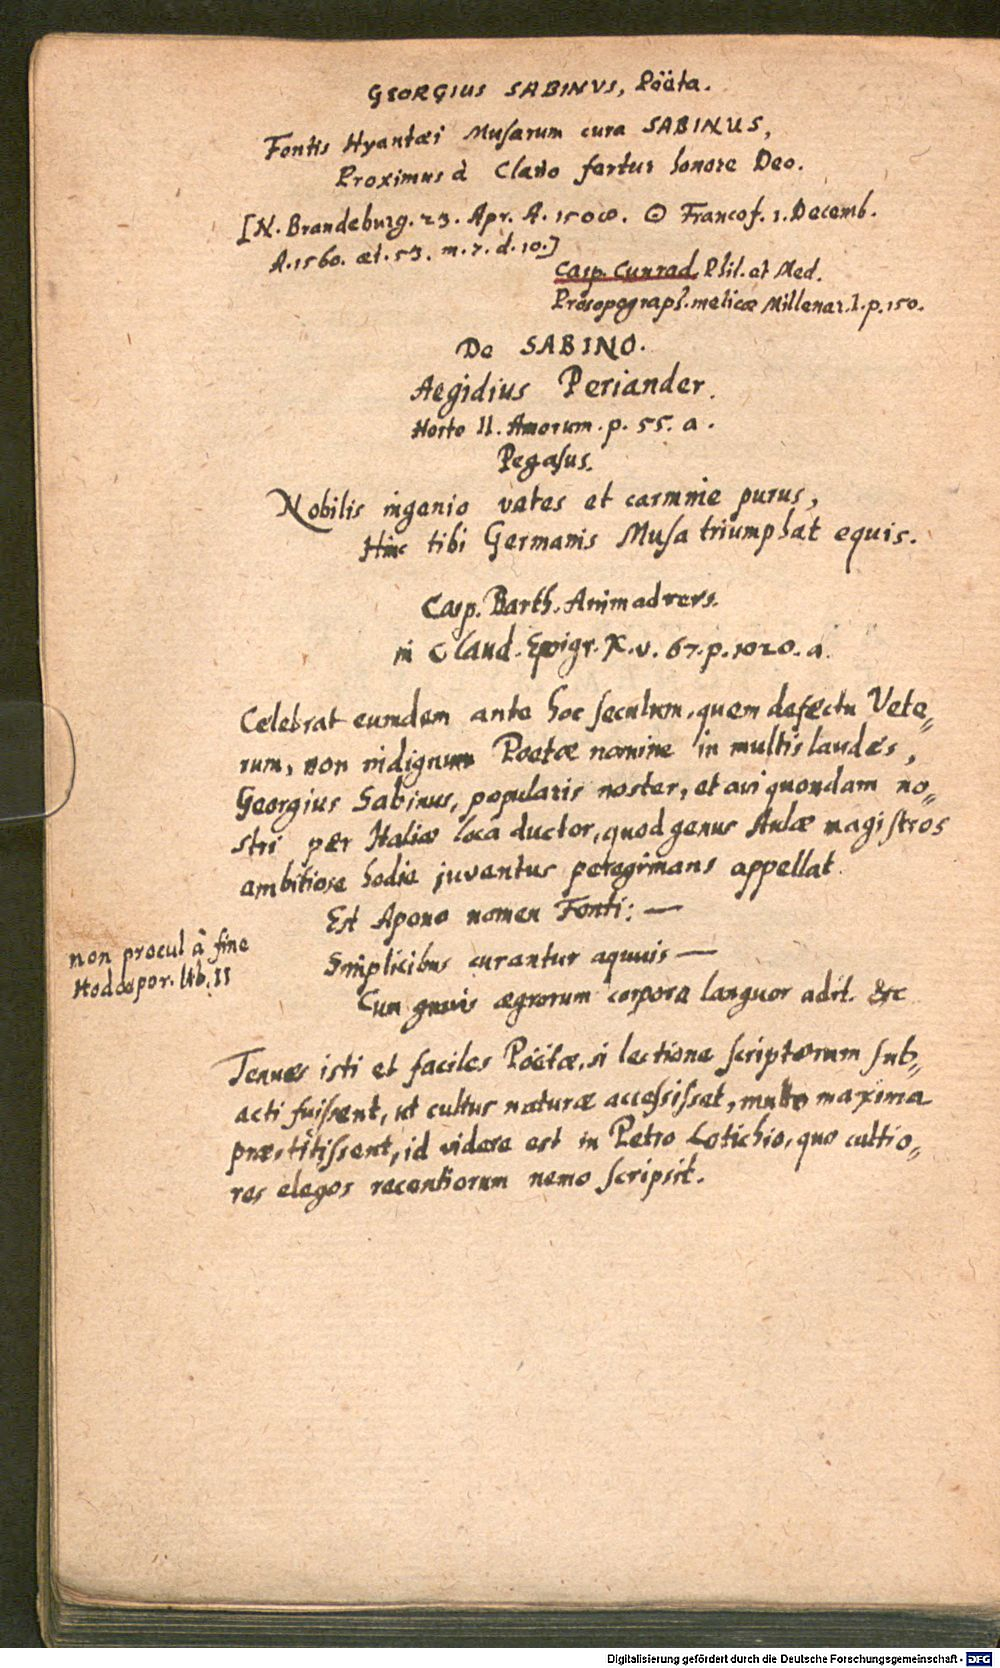 GEORGIUS SABINVS, Pöëta.
Fontis Hyantæi Musarum cura SABINUS,
Proximus à Clario fertur honore Deo.
[N. Brandeburg. 23. Apr. A. 1508. ☉ Francof. 1. Decemb.
A. 1560. æt. 53. m. 7. d. 10.]
Casp. Cunrad. Phil. et Med.
Prosopograph. melicæ Millenar. I. p. 150.
De SABINO.
Aegidius Periander.
Horto II. Amorum. p. 55. a.
Pegasus.
Nobilis ingenio vates et carmine purus,
Hinc tibi Germanis Musa triumphat equis.
Casp. Barth. Animadvers.
in Claud. Epigr. X. v. 67. p. 1020. a.
Celebrat eumdem ante hoc seculum, quem defectu Vete=
rum, non indignum Poetæ nomine in multis laudes,
Georgius Sabinus, popularis noster, et avi quondam no=
stri per Italiæ loca ductor, quod genus Aulæ magistros
ambitiose hodie juventus peregrinans appellat.
Est Apono nomen Fonti: —
non procul à fine
Hodoepor. lib. II
Simplicibus curantur aquis —
Cum gravis ægrorum corpora languor adit. &c
Tenues isti et faciles Pöëtæ, si lectione scriptorum sub=
acti fuissent, ut cultus naturæ accessisset, multo maxima
præstitissent, id videre est in Petro Lotichio, quo cultio=
res elegos recentiorum nemo scripsit.
Digitalisierung gefördert durch die Deutsche Forschungsgemeinschaft - DFG